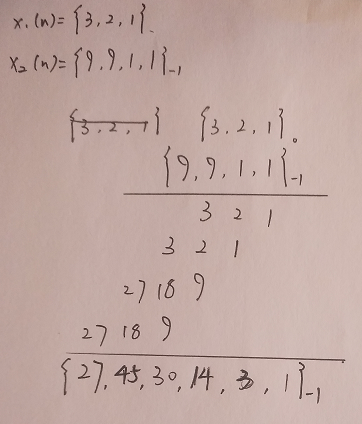 x₁(n)={3,2,1}₀
x₂(n)={9,9,1,1}₋₁
{3,2,1} {3,2,1}₀
{9,9,1,1}₋₁
3 2 1
3 2 1
27 18 9
27 18 9
{27,45,30,14,3,1}₋₁